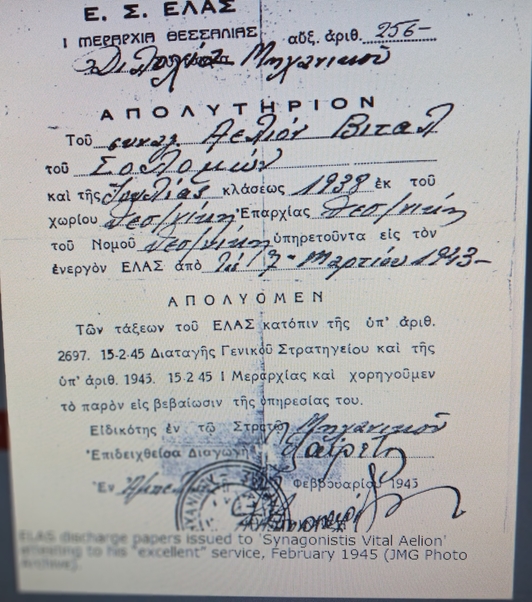 Ε. Σ. ΕΛΑΣ
Ι ΜΕΡΑΡΧΙΑ ΘΕΣΣΑΛΙΑΣ αὔξ. ἀριθ. 256-
Μηχανικοῦ
ΑΠΟΛΥΤΗΡΙΟΝ
Τοῦ συναγ. Αελιόν Βιταλ
τοῦ Σολομών
καὶ τῆς Ἰουλίας κλάσεως 1938 ἐκ τοῦ
χωρίου Θεσ/νίκη Ἐπαρχίας Θεσ/νίκη
τοῦ Νομοῦ Θεσ/νίκη ὑπηρετοῦντα εἰς τὸν
ἐνεργὸν ΕΛΑΣ ἀπὸ Μαρτίου 1943-
ΑΠΟΛΥΟΜΕΝ
Τῶν τάξεων τοῦ ΕΛΑΣ κατόπιν τῆς ὑπ' ἀριθ.
2697. 15-2-45 Διαταγῆς Γενικοῦ Στρατηγείου καὶ τῆς
ὑπ' ἀριθ. 1945. 15 2 45 Ι Μεραρχίας καὶ χορηγοῦμεν
τὸ παρὸν εἰς βεβαίωσιν τῆς ὑπηρεσίας του.
Εἰδικότης ἐν τῷ Στρατῷ Μηχανικοῦ
Ἐπιδειχθεῖσα Διαγωγὴ
Ἐν Φεβρουαρίου 1945
ELAS discharge papers issued to 'Synagonistis Vital Aelion'
attesting to his "excellent" service, February 1945 (JMG Photo
Archive).